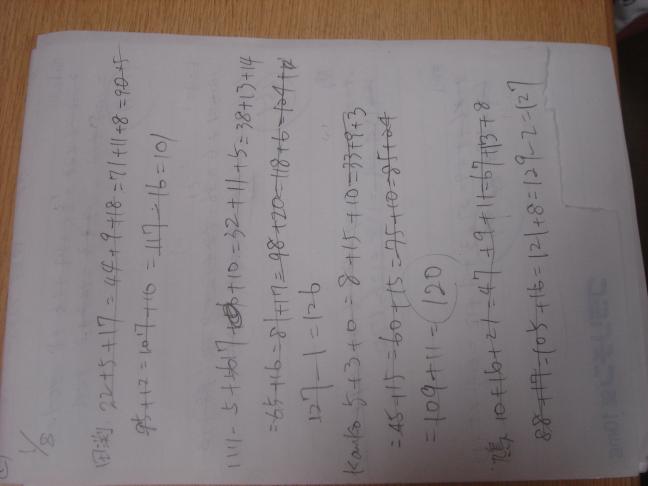 1/8
田渕 22+5+17=44+9+18=71+11+8=90+5
95+12=107+10=117-16=101
川 5+17+10=32+11+5=38+13+14
=65+16=81+17=98+20=118+6=124+
127-1=126
Kanko 5+3+0=8+15+10=33+9+3
=45+15=60+15=75+10=85+24
=109+11=120
10+16+21=47+9+11=67+13+8
88+17=105+16=121+8=129-2=127